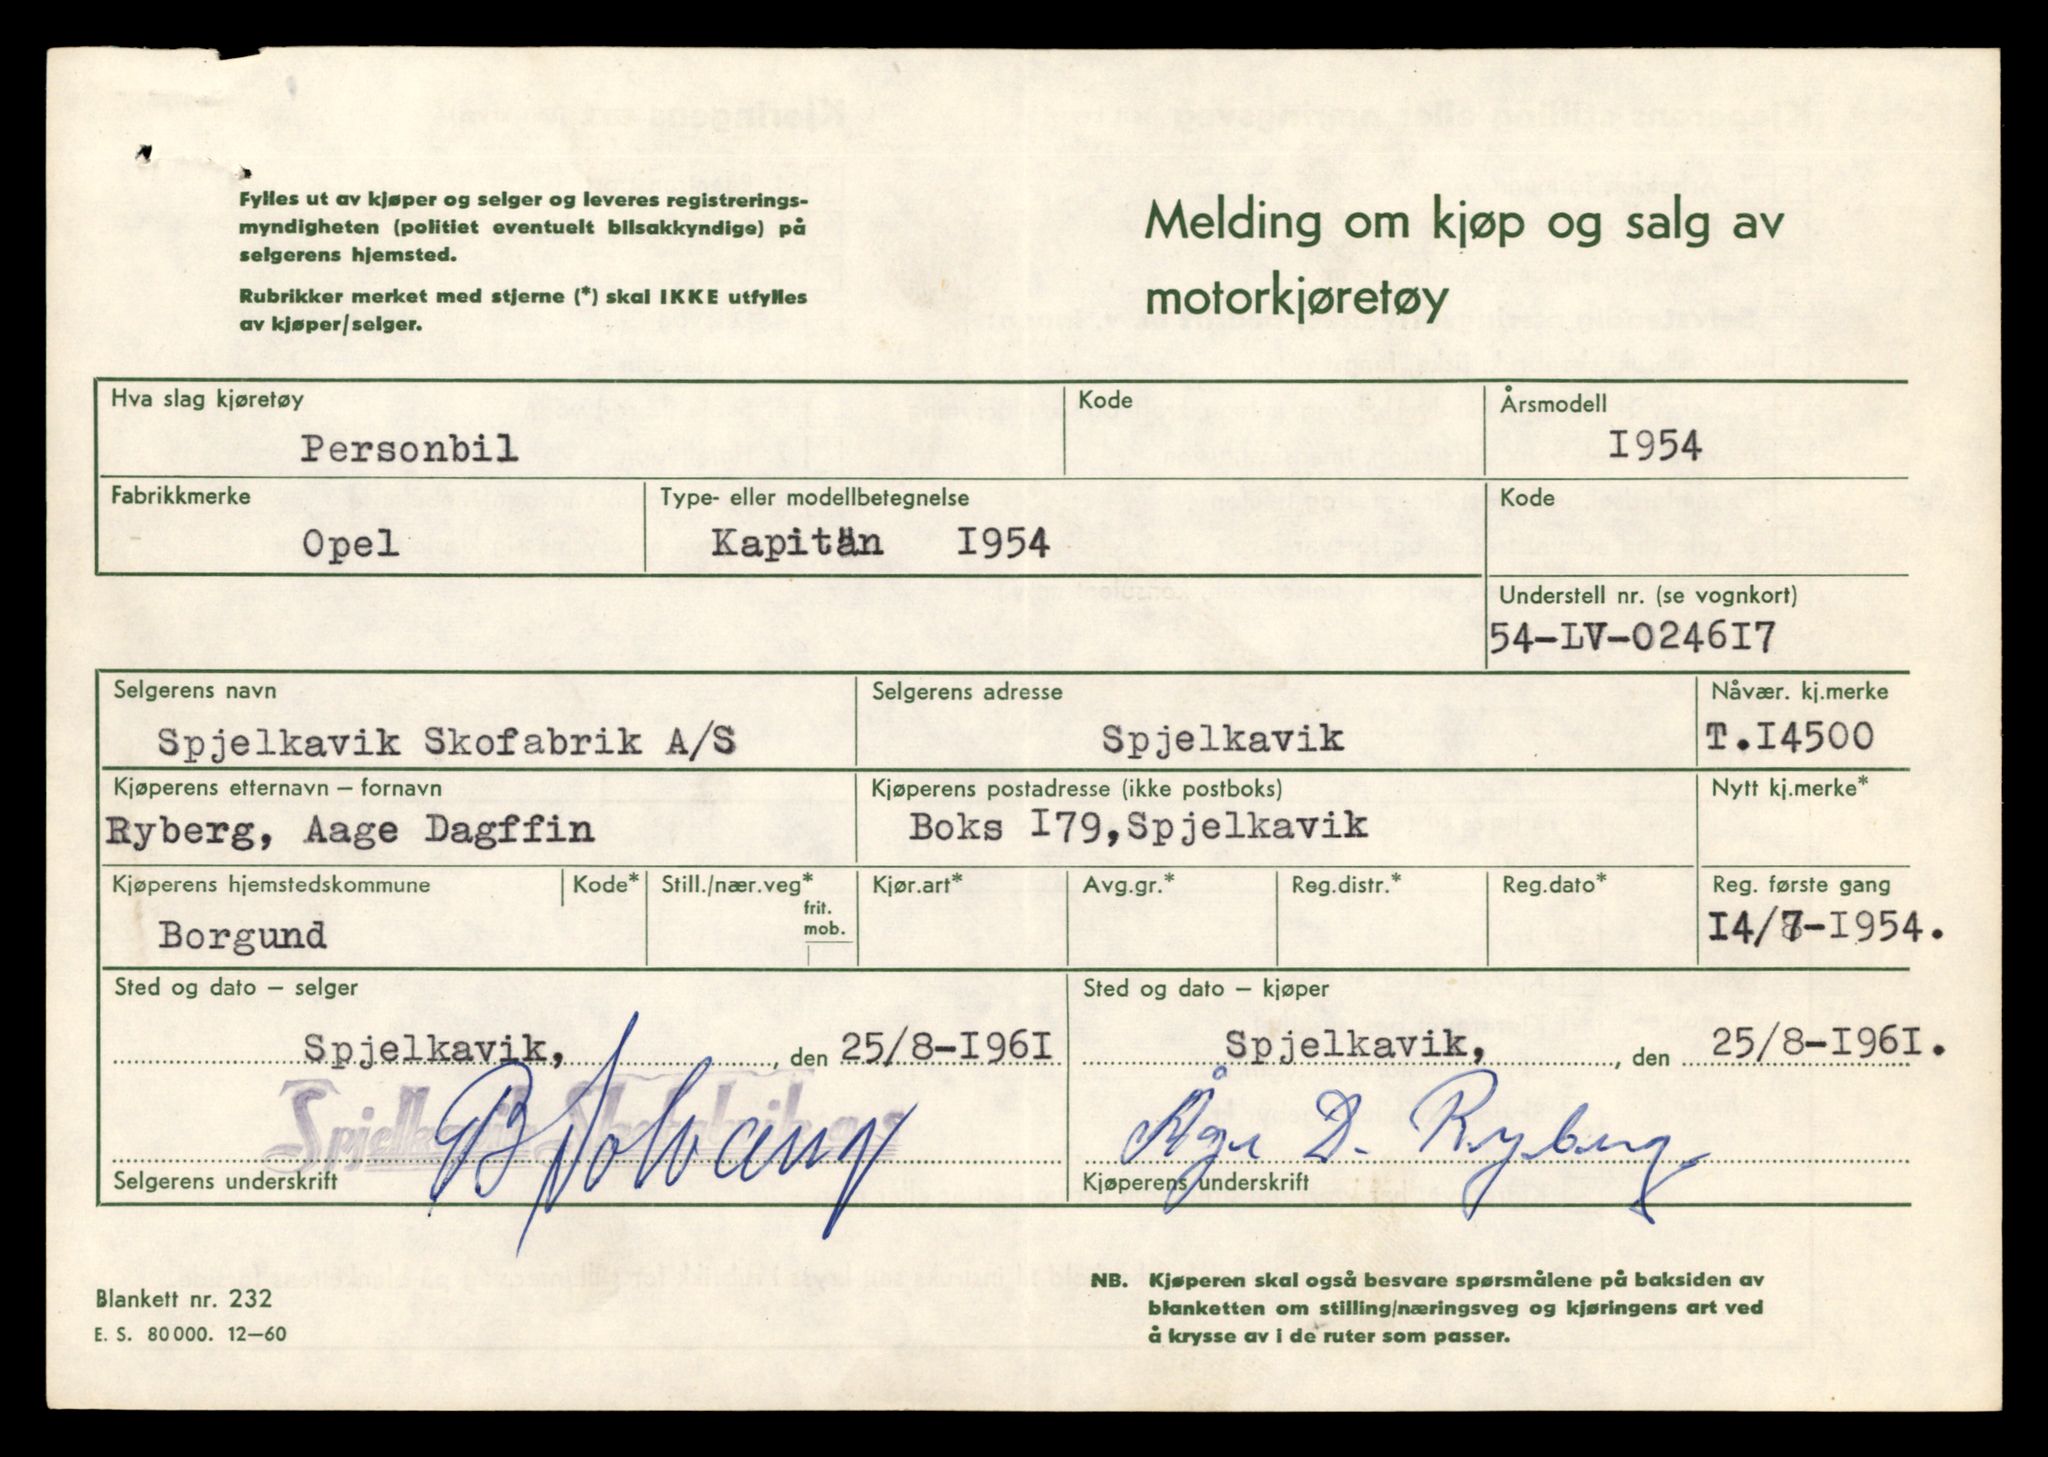 Fylles ut av kjøper og selger og leveres registrerings-
myndigheten (politiet eventuelt bilsakkyndige) på
selgerens hjemsted.
Rubrikker merket med stjerne (*) skal IKKE utfylles
av kjøper/selger.
Melding om kjøp og salg av
motorkjøretøy
Hva slag kjøretøy
Personbil
Kode
Årsmodell
I954
Fabrikkmerke
Opel
Type- eller modellbetegnelse
Kapitän I954
Kode
Understell nr. (se vognkort)
54-LV-0246I7
Selgerens navn
Spjelkavik Skofabrik A/S
Selgerens adresse
Spjelkavik
Nåvær. kj.merke
T.I4500
Kjøperens etternavn – fornavn
Ryberg, Aage Dagffin
Kjøperens postadresse (ikke postboks)
Boks I79,Spjelkavik
Nytt kj.merke*
Kjøperens hjemstedskommune
Borgund
Kode*
Still./nær.veg*
frit.
mob.
Kjør.art*
Avg.gr.*
Reg.distr.*
Reg.dato*
Reg. første gang
I4/7-I954.
Sted og dato – selger
Spjelkavik, , den 25/8-I96I
Spjelkavik Skofabrik a.s
Selgerens underskrift
Sted og dato – kjøper
Spjelkavik, , den 25/8-I96I.
Åge D. Ryberg
Kjøperens underskrift
Blankett nr. 232
E. S. 80 000. 12–60
NB. Kjøperen skal også besvare spørsmålene på baksiden av
blanketten om stilling/næringsveg og kjøringens art ved
å krysse av i de ruter som passer.